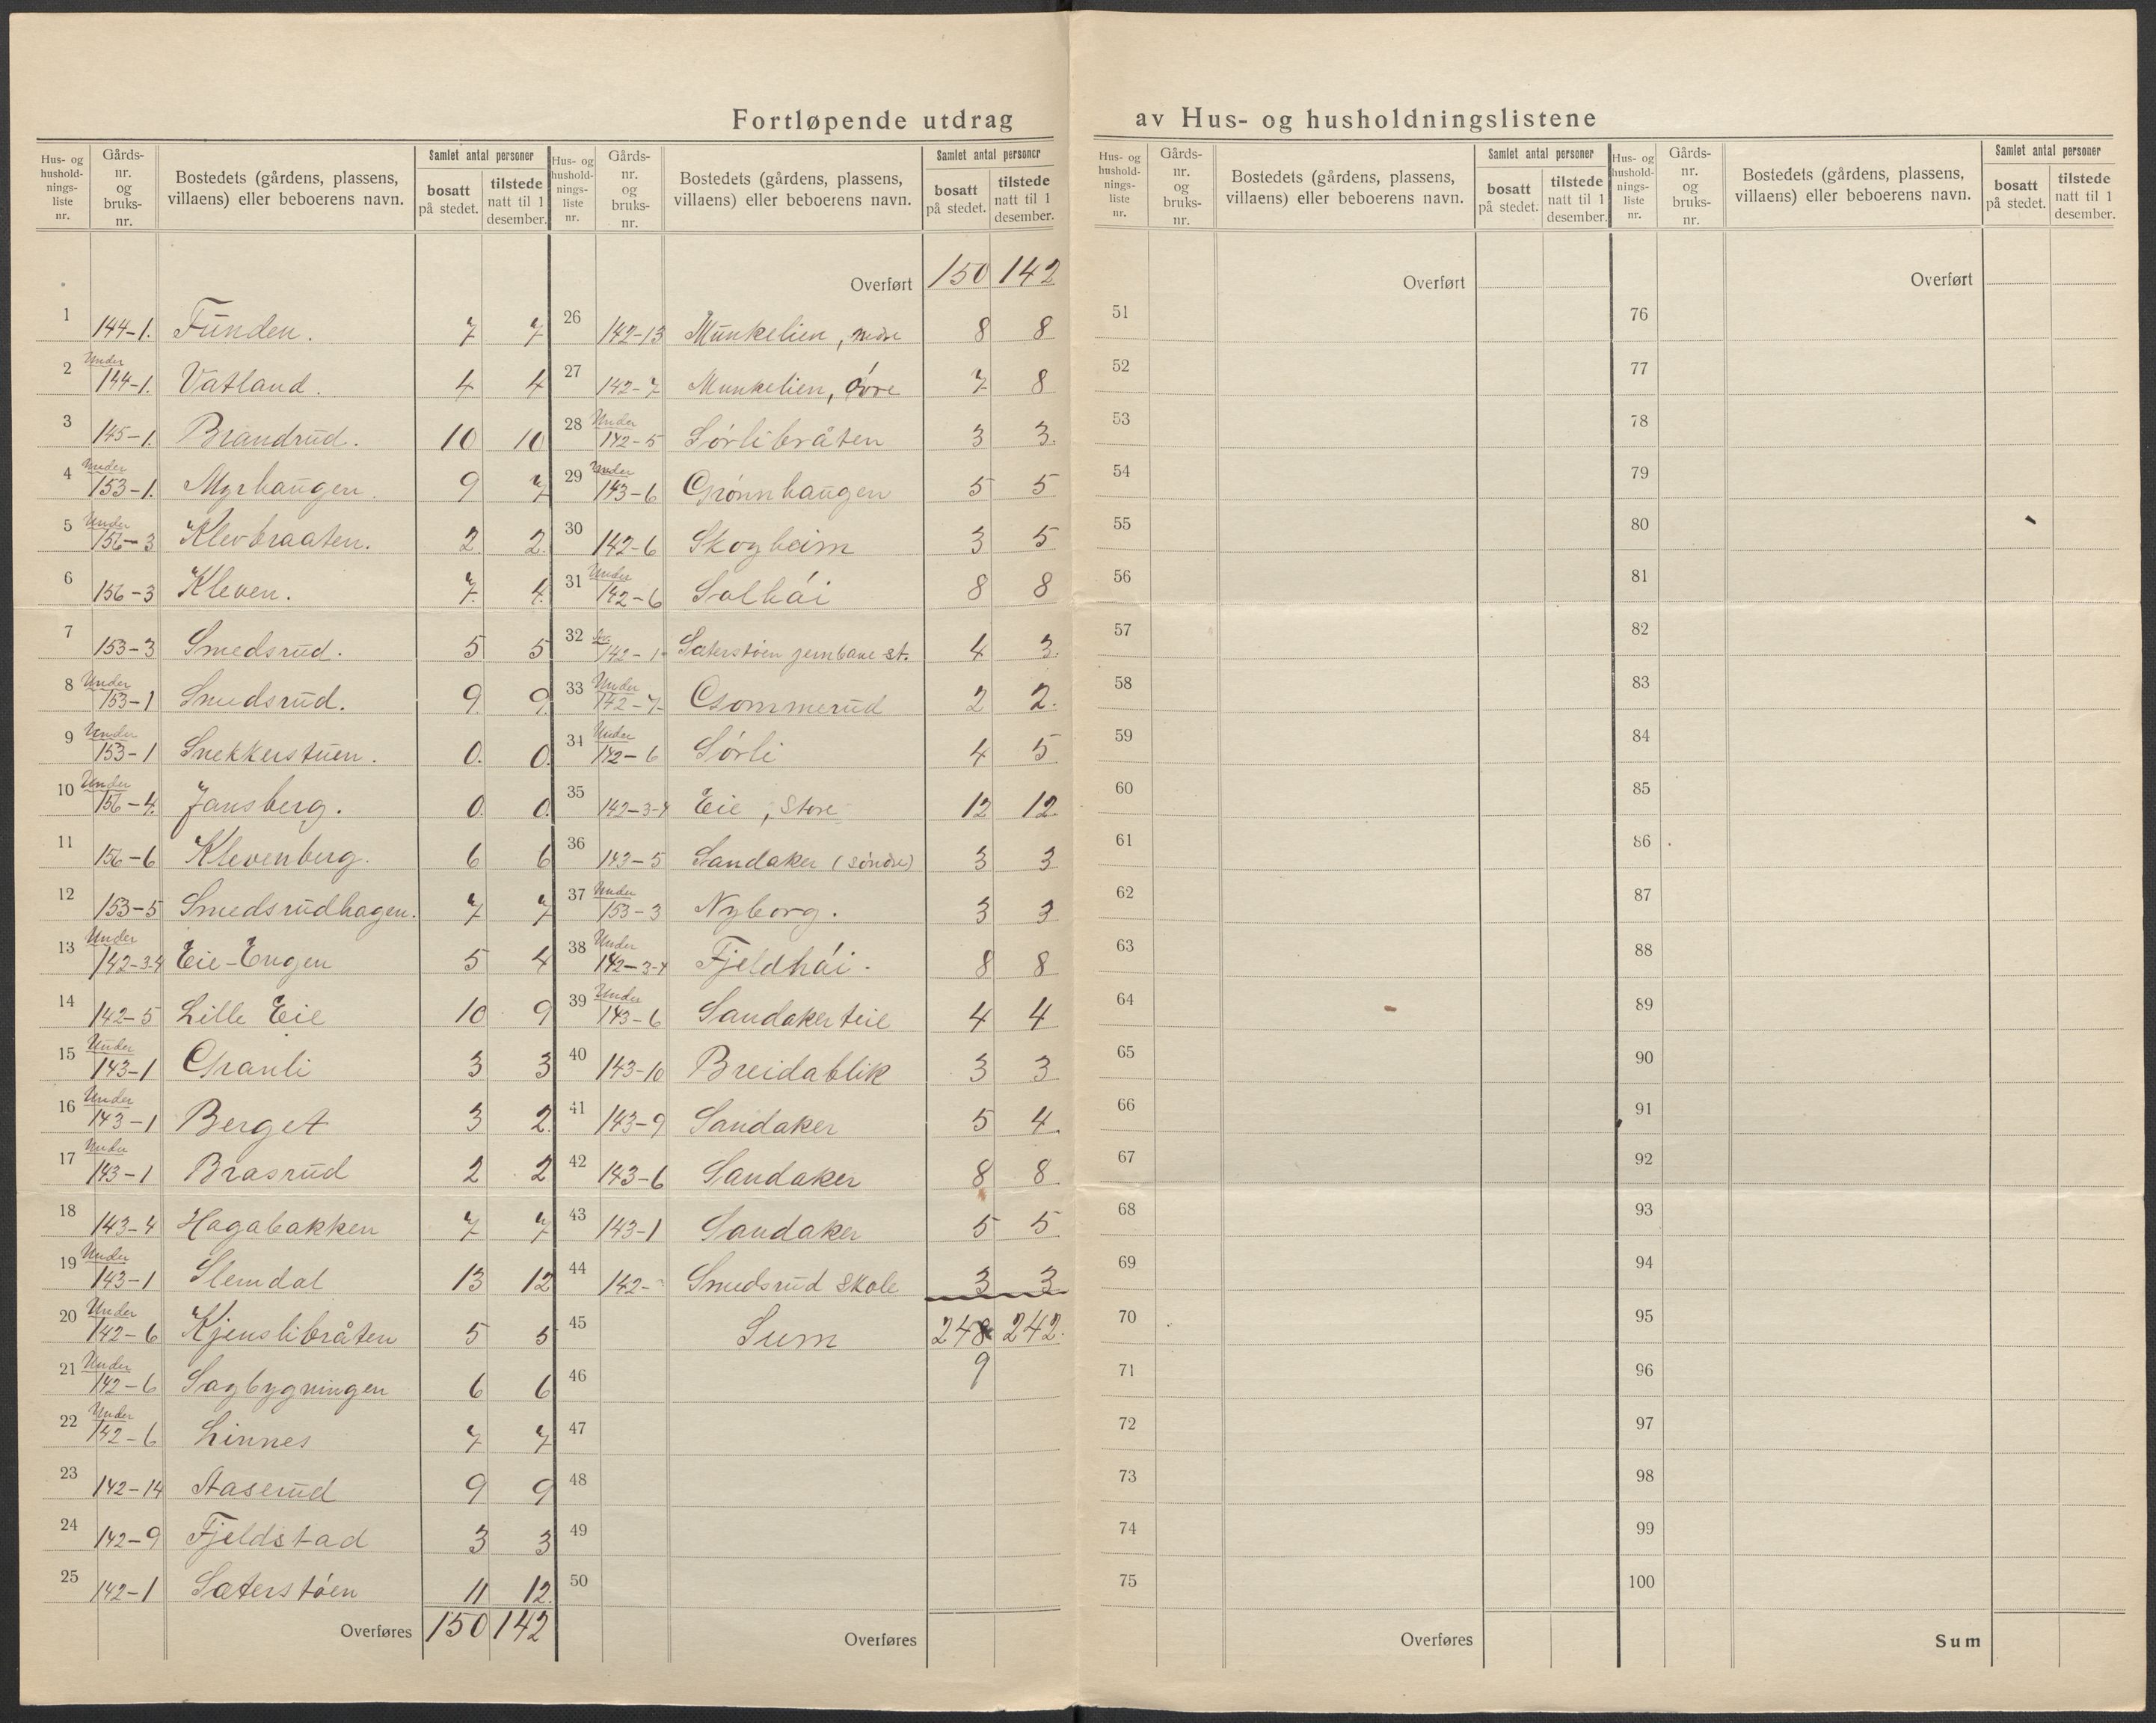 Fortløpende utdrag av Hus- og husholdningslistene
Hus- og hushold-nings-liste nr. Gårds-nr. og bruks-nr. Bostedets (gårdens, plassens, villaens) eller beboerens navn. Samlet antal personer bosatt på stedet. tilstede natt til 1 desember.
1 144-1. Funden. 7 7
2 Under 144-1. Vatland. 4 4
3 145-1. Brandrud. 10 10
4 Under 153-1. Myrhaugen. 9 7
5 Under 156-3 Klevbraaten. 2. 2.
6 156-3 Kleven. 7. 4.
7 153-3 Smedsrud. 5 5
8 Under 153-1 Smedsrud. 9. 9.
9 Under 153-1 Snekkerstuen. 0. 0.
10 Under 156-4. Jansberg. 0. 0.
11 156-6 Klevenberg. 6 6
12 153-5 Smedsrudhagen. 7 7
13 Under 142-3-4 Eie-Engen 5 4
14 142-5 Lille Eie 10 9
15 Under 143-1 Granli 3 3
16 Under 143-1 Berget 3 2.
17 Under 143-1 Brasrud 2 2
18 143-4 Hagabakken 7 7
19 Under 143-1 Slemdal 13 12
20 Under 142-6 Kjenslibråten 5 5
21 Under 142-6 Sagbygningen 6 6
22 Under 142-6 Linnes 7 7
23 142-14 Aaserud 9 9
24 142-9 Fjeldstad 3 3
25 142-1 Sæterstøen 11 12.
Overføres 150 142
Hus- og hushold-nings-liste nr. Gårds-nr. og bruks-nr. Bostedets (gårdens, plassens, villaens) eller beboerens navn. Samlet antal personer bosatt på stedet. tilstede natt til 1 desember.
Overført 150 142
26 142-13 Munkelien, nedre 8 8
27 142-7 Munkelien, øvre 7 8
28 Under 142-5 Sørlibråten 3 3.
29 Under 143-6 Grønnhaugen 5 5
30 142-6 Skogheim 3 5
31 Under 142-6 Solhøi 8 8
32 142-1 Sæterstøen jernbane st. 4 3.
33 Under 142-7 Gommerud 2 2.
34 Under 142-6 Sørli 4 5
35 142-3-4 Eie, Store 12 12.
36 143-5 Sandaker (søndre) 3 3
37 Under 153-3 Nyborg. 3 3
38 Under 142-3-4 Fjeldhøi. 8 8
39 Under 143-6 Sandakerteie 4 4
40 143-10 Breidablik 3 3
41 143-9 Sandaker 5 4.
42 143-6 Sandaker 8 8
43 143-1 Sandaker 5 5
44 142- Smedsrud skole 3 3
45 Sum 248 242.
46 9
47
48
49
50
Overføres
Hus- og hushold-nings-liste nr. Gårds-nr. og bruks-nr. Bostedets (gårdens, plassens, villaens) eller beboerens navn. Samlet antal personer bosatt på stedet. tilstede natt til 1 desember.
Overført
51
52
53
54
55
56
57
58
59
60
61
62
63
64
65
66
67
68
69
70
71
72
73
74
75
Overføres
Hus- og hushold-nings-liste nr. Gårds-nr. og bruks-nr. Bostedets (gårdens, plassens, villaens) eller beboerens navn. Samlet antal personer bosatt på stedet. tilstede natt til 1 desember.
Overført
76
77
78
79
80
81
82
83
84
85
86
87
88
89
90
91
92
93
94
95
96
97
98
99
100
Sum